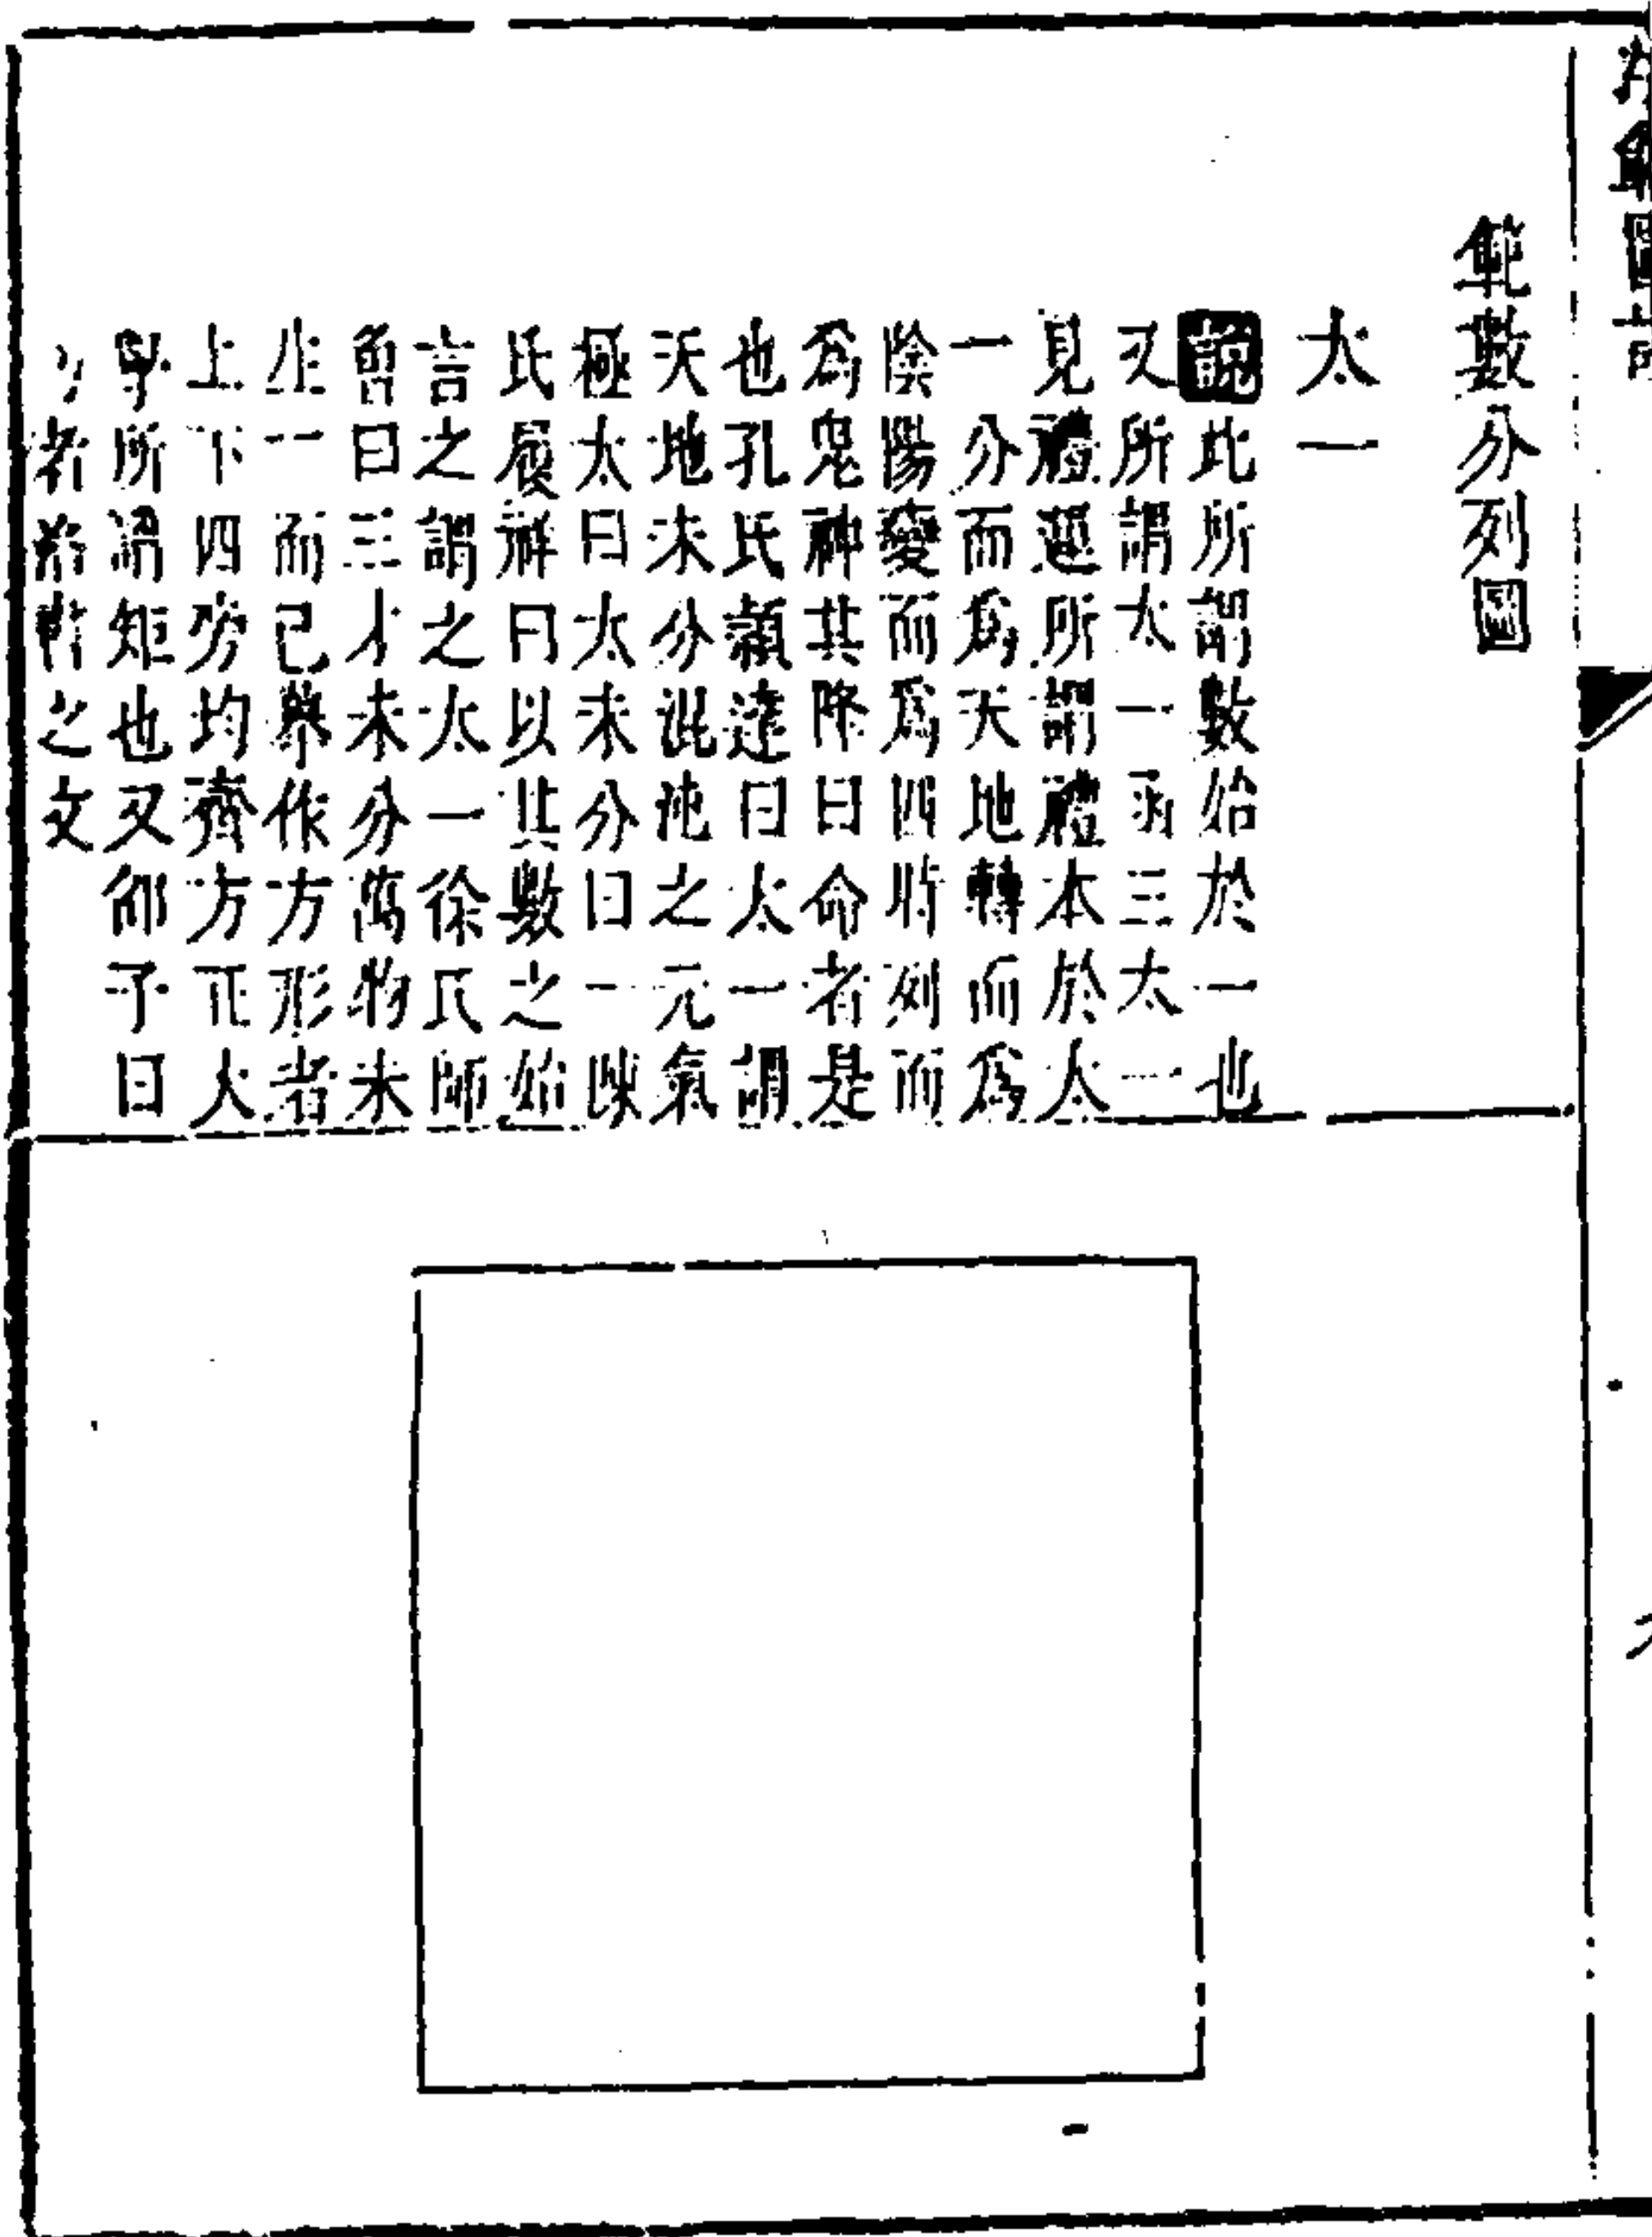 範數分列圖
太一
說此所謂數始於一也
又所謂太一函三太一
見禮運所謂禮本於太
一分而爲天地轉而爲
陰陽變而爲四時列而
爲鬼神其降曰命者是
也孔氏穎達曰太一謂
天地未分混沌之元氣
極太曰太未分曰一陳
氏履祥曰以其數之始
言之謂之太一徐氏師
曾曰三才未分萬物未
生一而已㮣作方形者
上下四旁均齊方正大
學所謂矩也又邵子曰
方者
之文